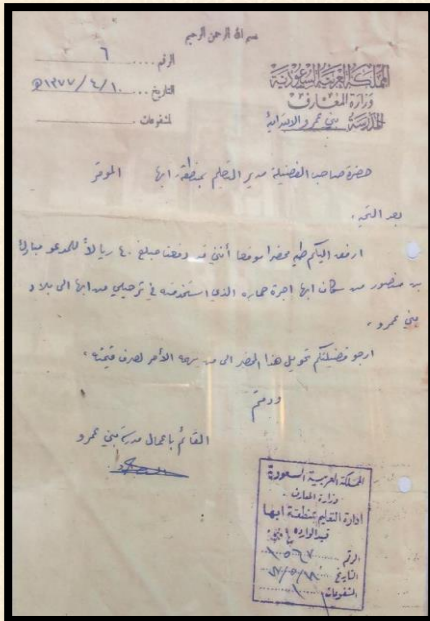 بسم الله الرحمن الرحيم
المملكة العربية السعودية
وزارة المعارف
المدرسة بني عمرو الابتدائية
الرقم .... ٦
التاريخ ... ١٣٧٧/٤/١٠
المشفوعات
حضرة صاحب الفضيلة مدير التعليم بمنطقة ابها الموقر
بعد التحية .
ارفع اليكم طيه محضرا موضحا أنني قد دفعت مبلغ ٤٠ ريالاً للمدعو مبارك
بن منصور من سكان ابها اجرة حماره الذي استخدمته في ترحيلي من ابها الى بلاد
بني عمرو .
ارجو فضيلتكم تحويل هذا المحضر الى من يهمه الأمر لصرف قيمته .
ودمتم
القائم باعمال مدرسة بني عمرو
المملكة العربية السعودية
وزارة المعارف
ادارة التعليم بمنطقة ابها
قيد الوارده
الرقم
التاريخ
المشفوعات